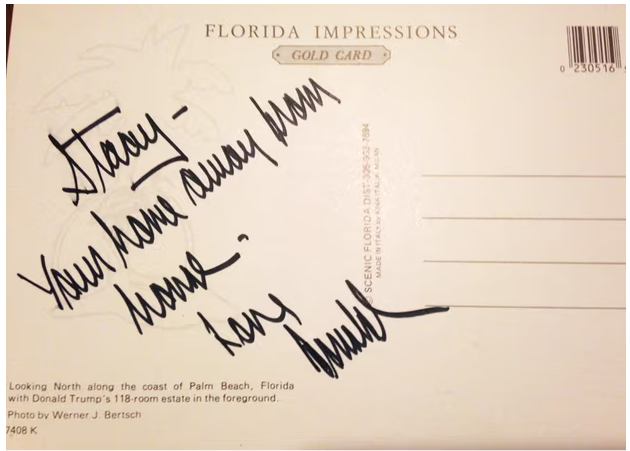 FLORIDA IMPRESSIONS
GOLD CARD
0 230516
Stacy-
Your home away from
home.
Love,
Donald
© SCENIC FLORIDA DIST.
MADE IN ITALY
Looking North along the coast of Palm Beach, Florida
with Donald Trump's 118-room estate in the foreground.
Photo by Werner J. Bertsch
7408 K